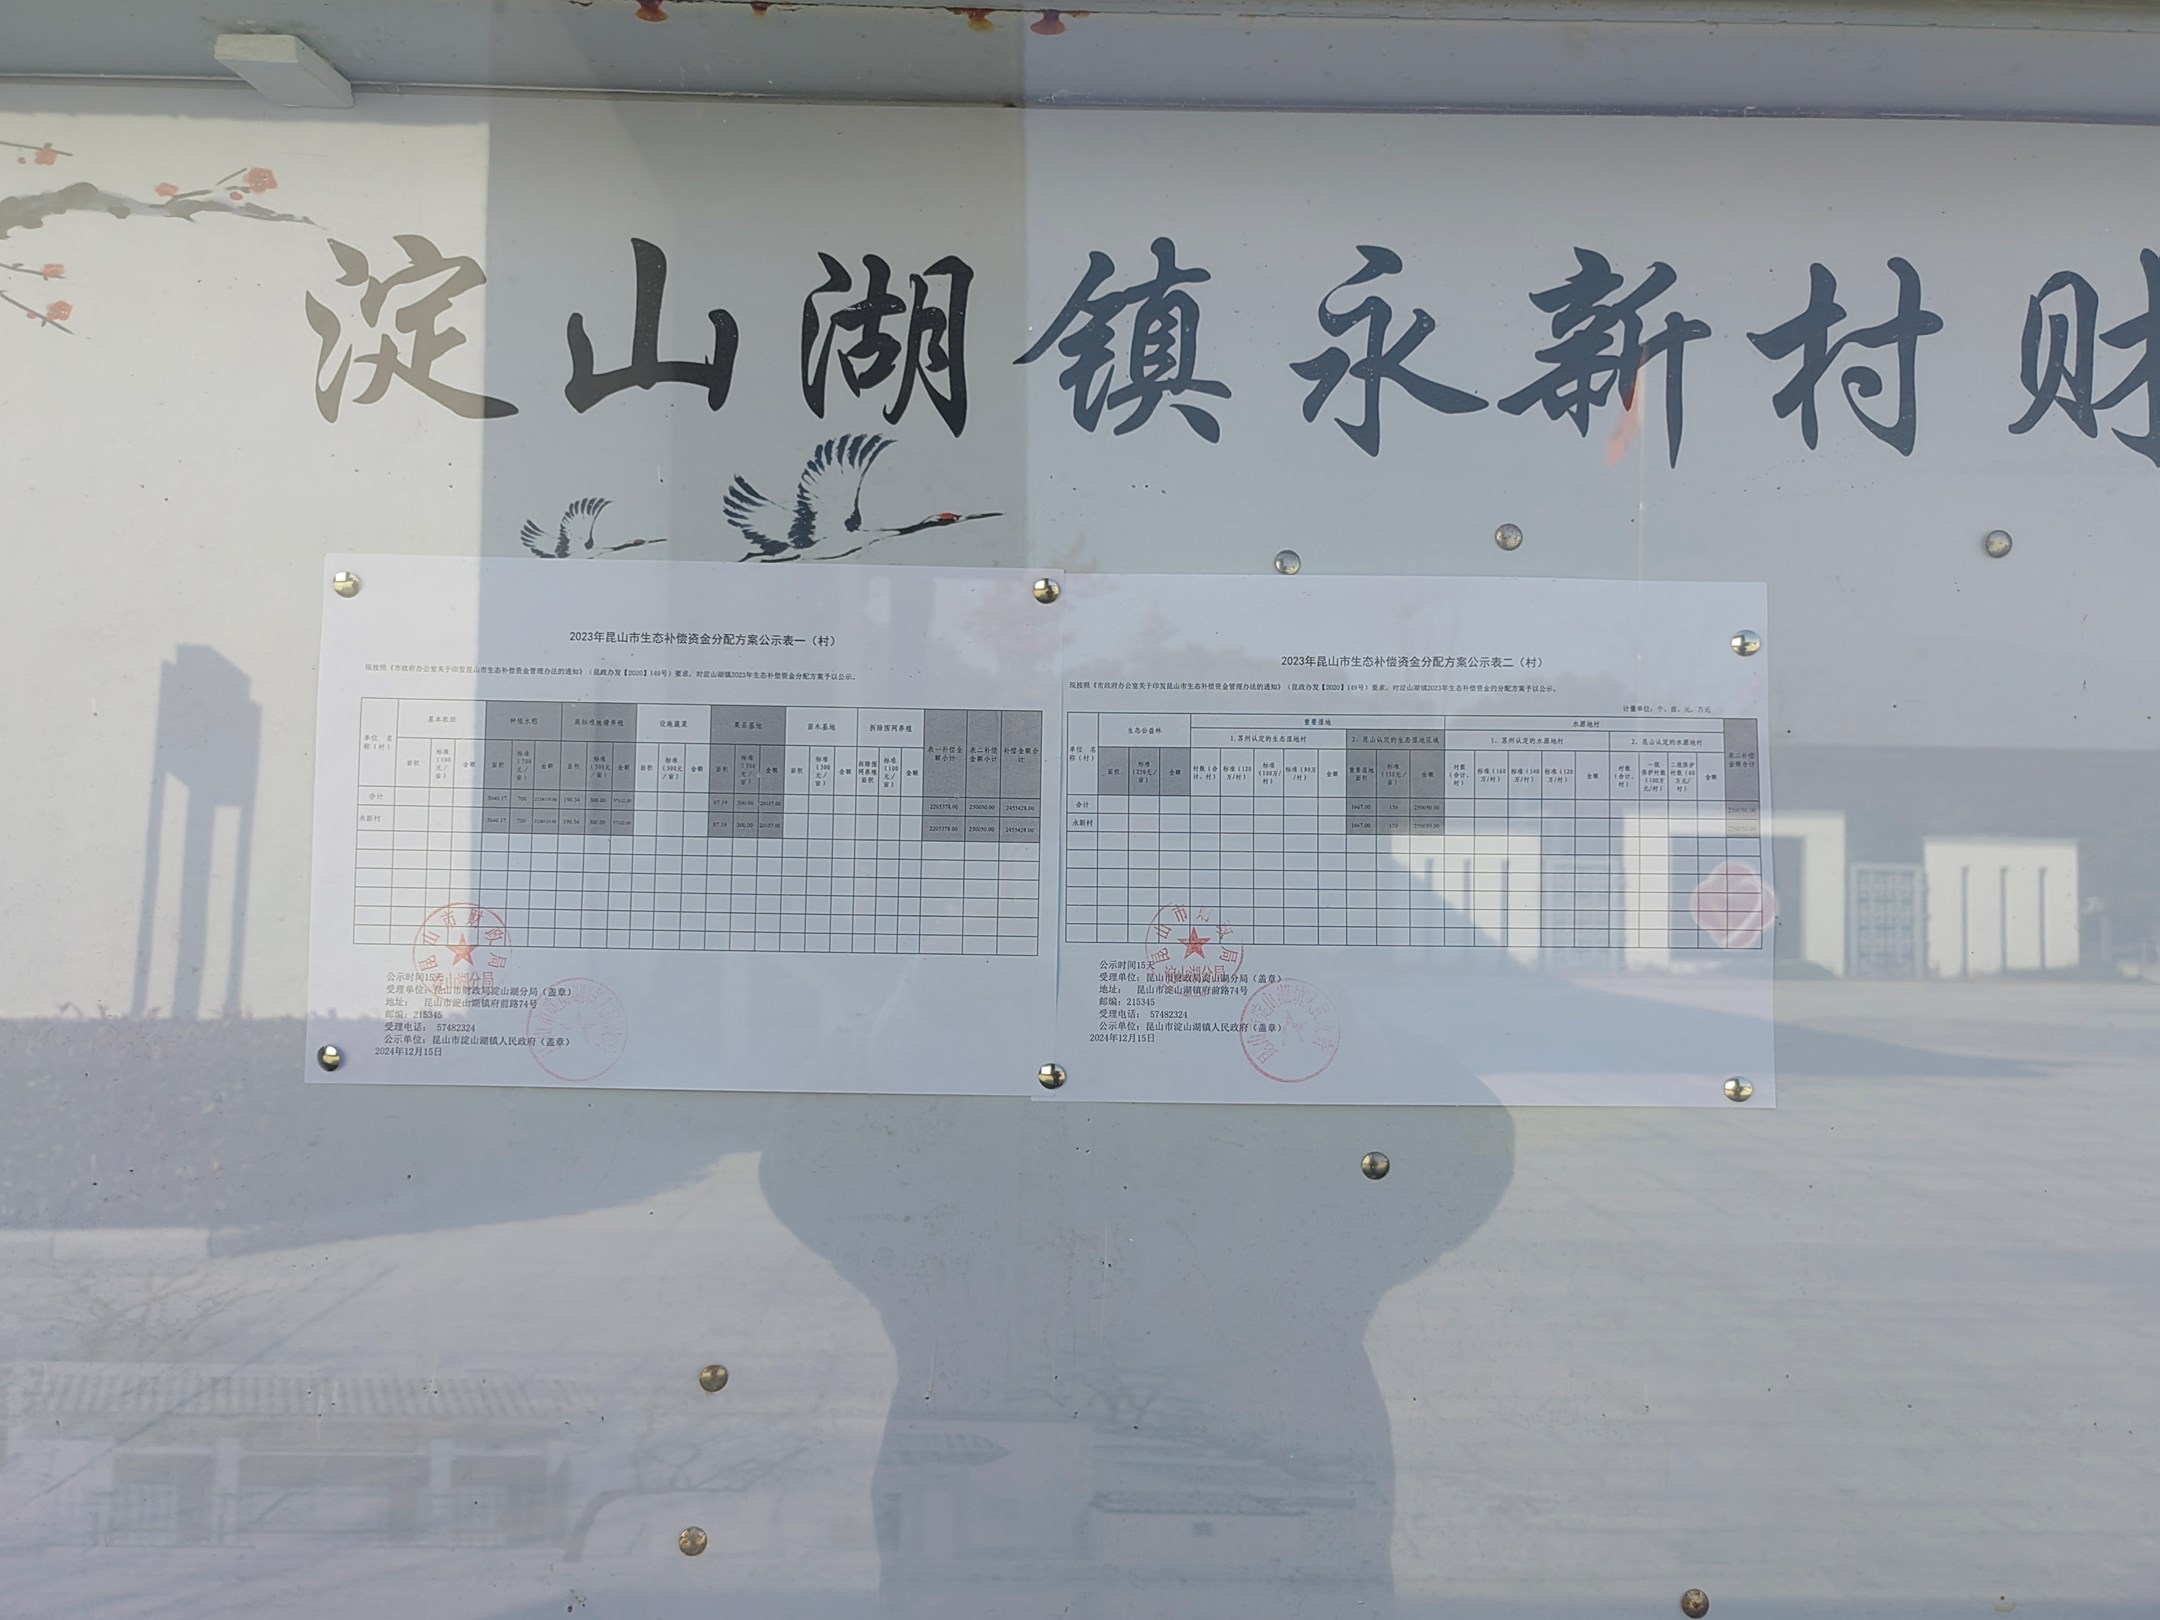 淀山湖镇永新村财
2023年昆山市生态补偿资金分配方案公示表一（村）
现按照《市政府办公室关于印发昆山市生态补偿资金管理办法的通知》（昆政办发【2020】149号）要求，对淀山湖镇2023年生态补偿资金分配方案予以公示。
单位名称（村） 基本农田 种植水稻 高标准池塘养殖 设施蔬菜 果品基地 苗木基地 拆除围网养殖 表一补偿金额小计 表二补偿金额小计 补偿金额合计
面积 标准（100元/亩） 金额 面积 标准（700元/亩） 金额 面积 标准（300元/亩） 金额 面积 标准（300元/亩） 金额 面积 标准（300元/亩） 金额 面积 标准（300元/亩） 金额 拆除围网养殖面积 标准（100元/亩） 金额
合计 3040.17 700 190.34 300.00 57102.00 87.19 300.00 26157.00 2205378.00 250050.00 2455428.00
永新村 3040.17 700 190.34 300.00 57102.00 87.19 300.00 26157.00 2205378.00 250050.00 2455428.00
昆山市财政局
淀山湖分局
公示时间15天
受理单位：昆山市财政局淀山湖分局（盖章）
地址： 昆山市淀山湖镇府前路74号
邮编：215345
受理电话： 57482324
公示单位：昆山市淀山湖镇人民政府（盖章）
2024年12月15日
2023年昆山市生态补偿资金分配方案公示表二（村）
现按照《市政府办公室关于印发昆山市生态补偿资金管理办法的通知》（昆政办发【2020】149号）要求，对淀山湖镇2023年生态补偿资金的分配方案予以公示。
计量单位：个、亩、元、万元
单位名称（村） 生态公益林 重要湿地 水源地村 表二补偿金额合计
1、苏州认定的生态湿地村 2、昆山认定的生态湿地区域 1、苏州认定的水源地村 2、昆山认定的水源地村
面积 标准（250元/亩） 金额 村数（合计，村） 标准（120万/村） 标准（100万/村） 标准（80万/村） 金额 重要湿地面积 标准（150元/亩） 金额 村数（合计，村） 标准（160万/村） 标准（140万/村） 标准（120万/村） 金额 村数（合计，村） 一级保护村数（100万元/村） 二级保护村数（60万元/村） 金额
合计 1667.00 150 250050.00 250050.00
永新村 1667.00 150 250050.00 250050.00
昆山市财政局
淀山湖分局
公示时间15天
受理单位：昆山市财政局淀山湖分局（盖章）
地址： 昆山市淀山湖镇府前路74号
邮编：215345
受理电话： 57482324
公示单位：昆山市淀山湖镇人民政府（盖章）
2024年12月15日